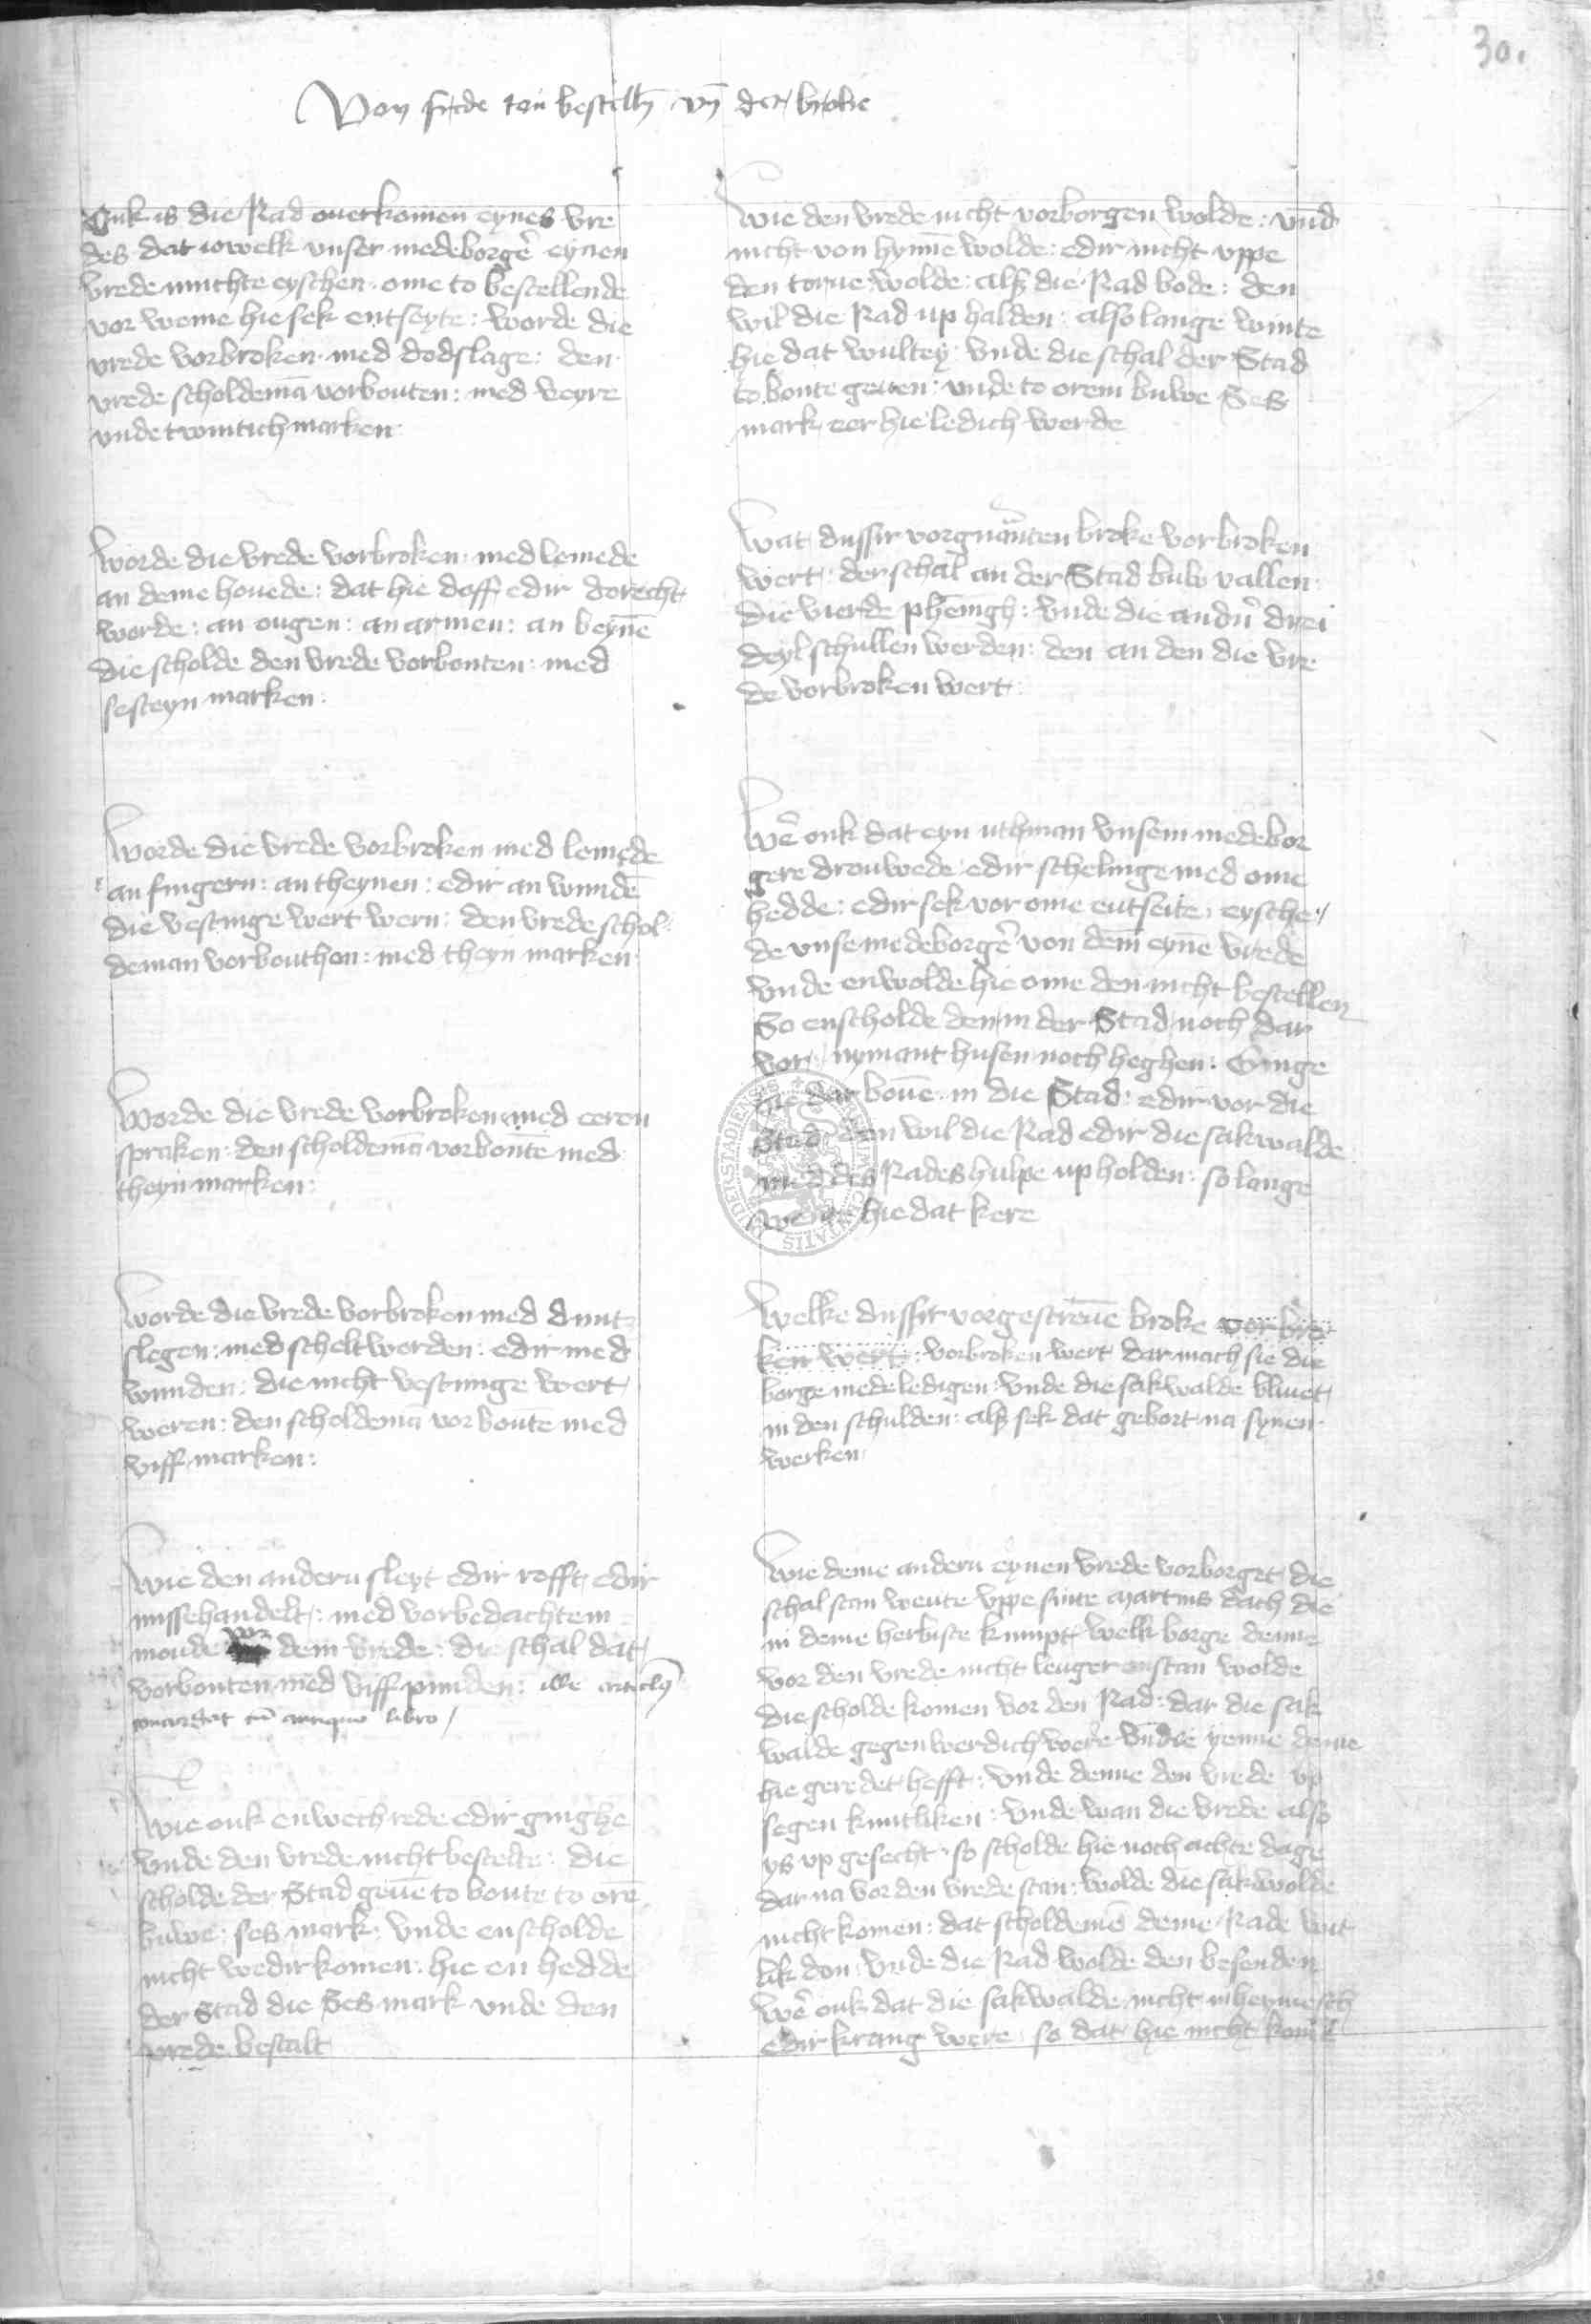 30.
Von frede tou bestelln vn der broke
Ouk is die Rad ouerkomen eynes vre
des dat iowelk vnser medeborgẽ eynen
vrede muchte eyschen. ome to bestellende
vor weme hie sek entseyte: worde die
vrede vorbroken. med dodslage: den
vrede scholdemā vorbouten: med veyre
vnde twintich marken.
Worde die vrede vorbroken. med lemede
an deme houede: dat hie doff edir dorecht
worde: an ougen: an armen: an beynē
die scholde den vrede vorbouten: med
sesteyn marken:
Worde die vrede vorbroken med lemede
an fingern: an theynen: edir an wundē
die vestinge wert wern: den vrede schol
deman vorbouthen: med theyn marken.
Worde die vrede vorbroken med eeren
spraken: den scholdemā vorboutē med
theyn marken:
Worde die vrede vorbroken med dunt
slegen: med scheltworden: edir med
wunden: die nicht vestunge wert
weren: den scholdemā vorboutē med
viff marken:
Wie den andern sleyt edir rofft edir
missehandelt: med vorbedachtem
moude vor dem vrede: die schal dat
vorbouten med viff punden: ille articlꝯ
concordat cū antiquo libro
Wie ouk enwech rede edir ginghe
vnde den vrede nicht bestelte: die
scholde der Stad geuē to boute to orē
buwe: ses mark. vnde enscholde
nicht wedir komen: hie en hedde
der Stad die Ses mark vnde den
vrede bestalt
Wie den vrede nicht vorborgen wolde: vnd
nicht von hynnē wolde: edir nicht vppe
den torne wolde: alß die Rad bode: den
wil die Rad up halden: also lange winte
hie dat wultey vnde die schal der Stad
to boute geuen: vnde to orem buwe Ses
mark eer hie ledich werde
Wat dussir vorgnāten broke vorbroken
wert: der schal an der Stad buw vallen
die vierde phēnigh: vnde die andñ drei
deyl schullen werden: den an den die vre
de vorbroken wert:
Wẽ ouk dat eyn uthman vnsem medebor
gere drouwede edir schelinge med ome
hedde: edir sek vor ome entseite, eysche
de vnse medeborgẽ von dem eynē vrede
vnde enwolde hie ome den nicht bestellen
So enscholde den in der Stad noch dar
vor nymant husen noch heghen: Ginge
hie dar bouē in die Stad: edir vor die
Stad den wil die Rad edir die sakwalde
med des Rades hulpe up holden: so lange
hie dat kere
Welke dussir vorgescreuē broke vorbro
ken wert: vorbroken wert dar mach sie die
borge mede ledigen: vnde die sakwalde bliuet
in den schulden: alß sek dat gebort na synen
werken
Wie deme andern eynen vrede vorborget die
schal stan wente vppe sinte martins dach die
in deme herbiste kumpt welk borge denne
vor den vrede nicht lenger enstan wolde
die scholde komen vor den Rad: dar die sak
walde gegenwerdich were vnde yenne deme
hie geredet hefft: vnde denne den vrede vp
segen kuntliken: vnde wan die vrede also
ys vp gesecht: so scholde hie noch achte dage
dar na vor den vrede stan: wolde die sakwolde
nicht komen: dat scholdemē deme Rade wit
lik don: vnde die Rad wolde den besenden
Wẽ ouk dat die sakwalde nicht inheymesch
edir krang were so dat hie nicht